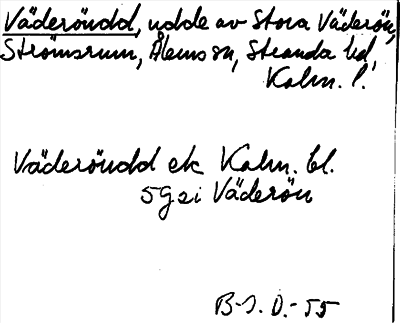 Väderöudd, udde av Stora Väderön,
Strömsrum, Ålems sn, Stranda hd,
Kalm. l.
Väderöudd ek Kalm. bl.
5 9 Väderön
B-S. D.-55